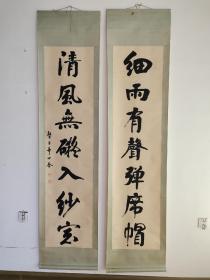 細雨有聲弹席帽
清風無礙入紗窓